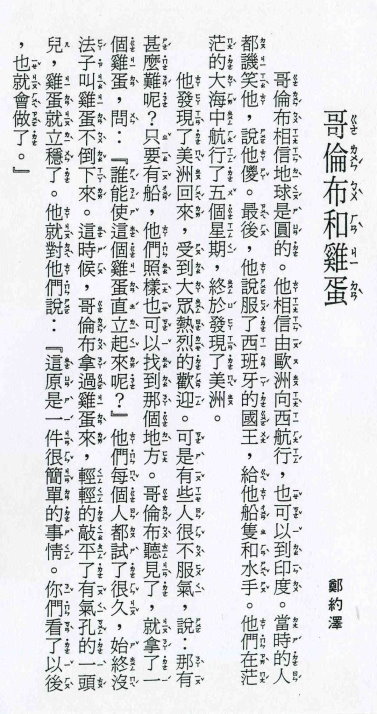 哥倫布和雞蛋
鄭約澤
哥倫布相信地球是圓的。他相信由歐洲向西航行，也可以到印度。當時的人
都譏笑他，說他傻。最後，他說服了西班牙的國王，給他船隻和水手。他們在茫
茫的大海中航行了五個星期，終於發現了美洲。
他發現了美洲回來，受到大眾熱烈的歡迎。可是有些人很不服氣，說：那有
甚麼難呢？只要有船，他們照樣也可以找到那個地方。哥倫布聽見了，就拿了一
個雞蛋，問：『誰能使這個雞蛋直立起來呢？』他們每個人都試了很久，始終沒
法子叫雞蛋不倒下來。這時候，哥倫布拿過雞蛋來，輕輕的敲平了有氣孔的一頭
兒，雞蛋就立穩了。他就對他們說：『這原是一件很簡單的事情。你們看了以後
，也就會做了。』